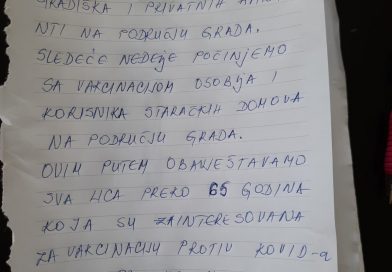 GRADIŠKA I PRIVATNIH
NTI NA PODRUČJU GRADA.
SLEDEĆE NEDELJE POČINJEMO
SA VAKCINACIJOM OSOBLJA I
KORISNIKA STARAČKIH DOMOVA
NA PODRUČJU GRADA.
OVIM PUTEM OBAVJEŠTAVAMO
SVA LICA PREKO 65 GODINA
KOJA SU ZAINTERESOVANA
ZA VAKCINACIJU PROTIV KOVID-a